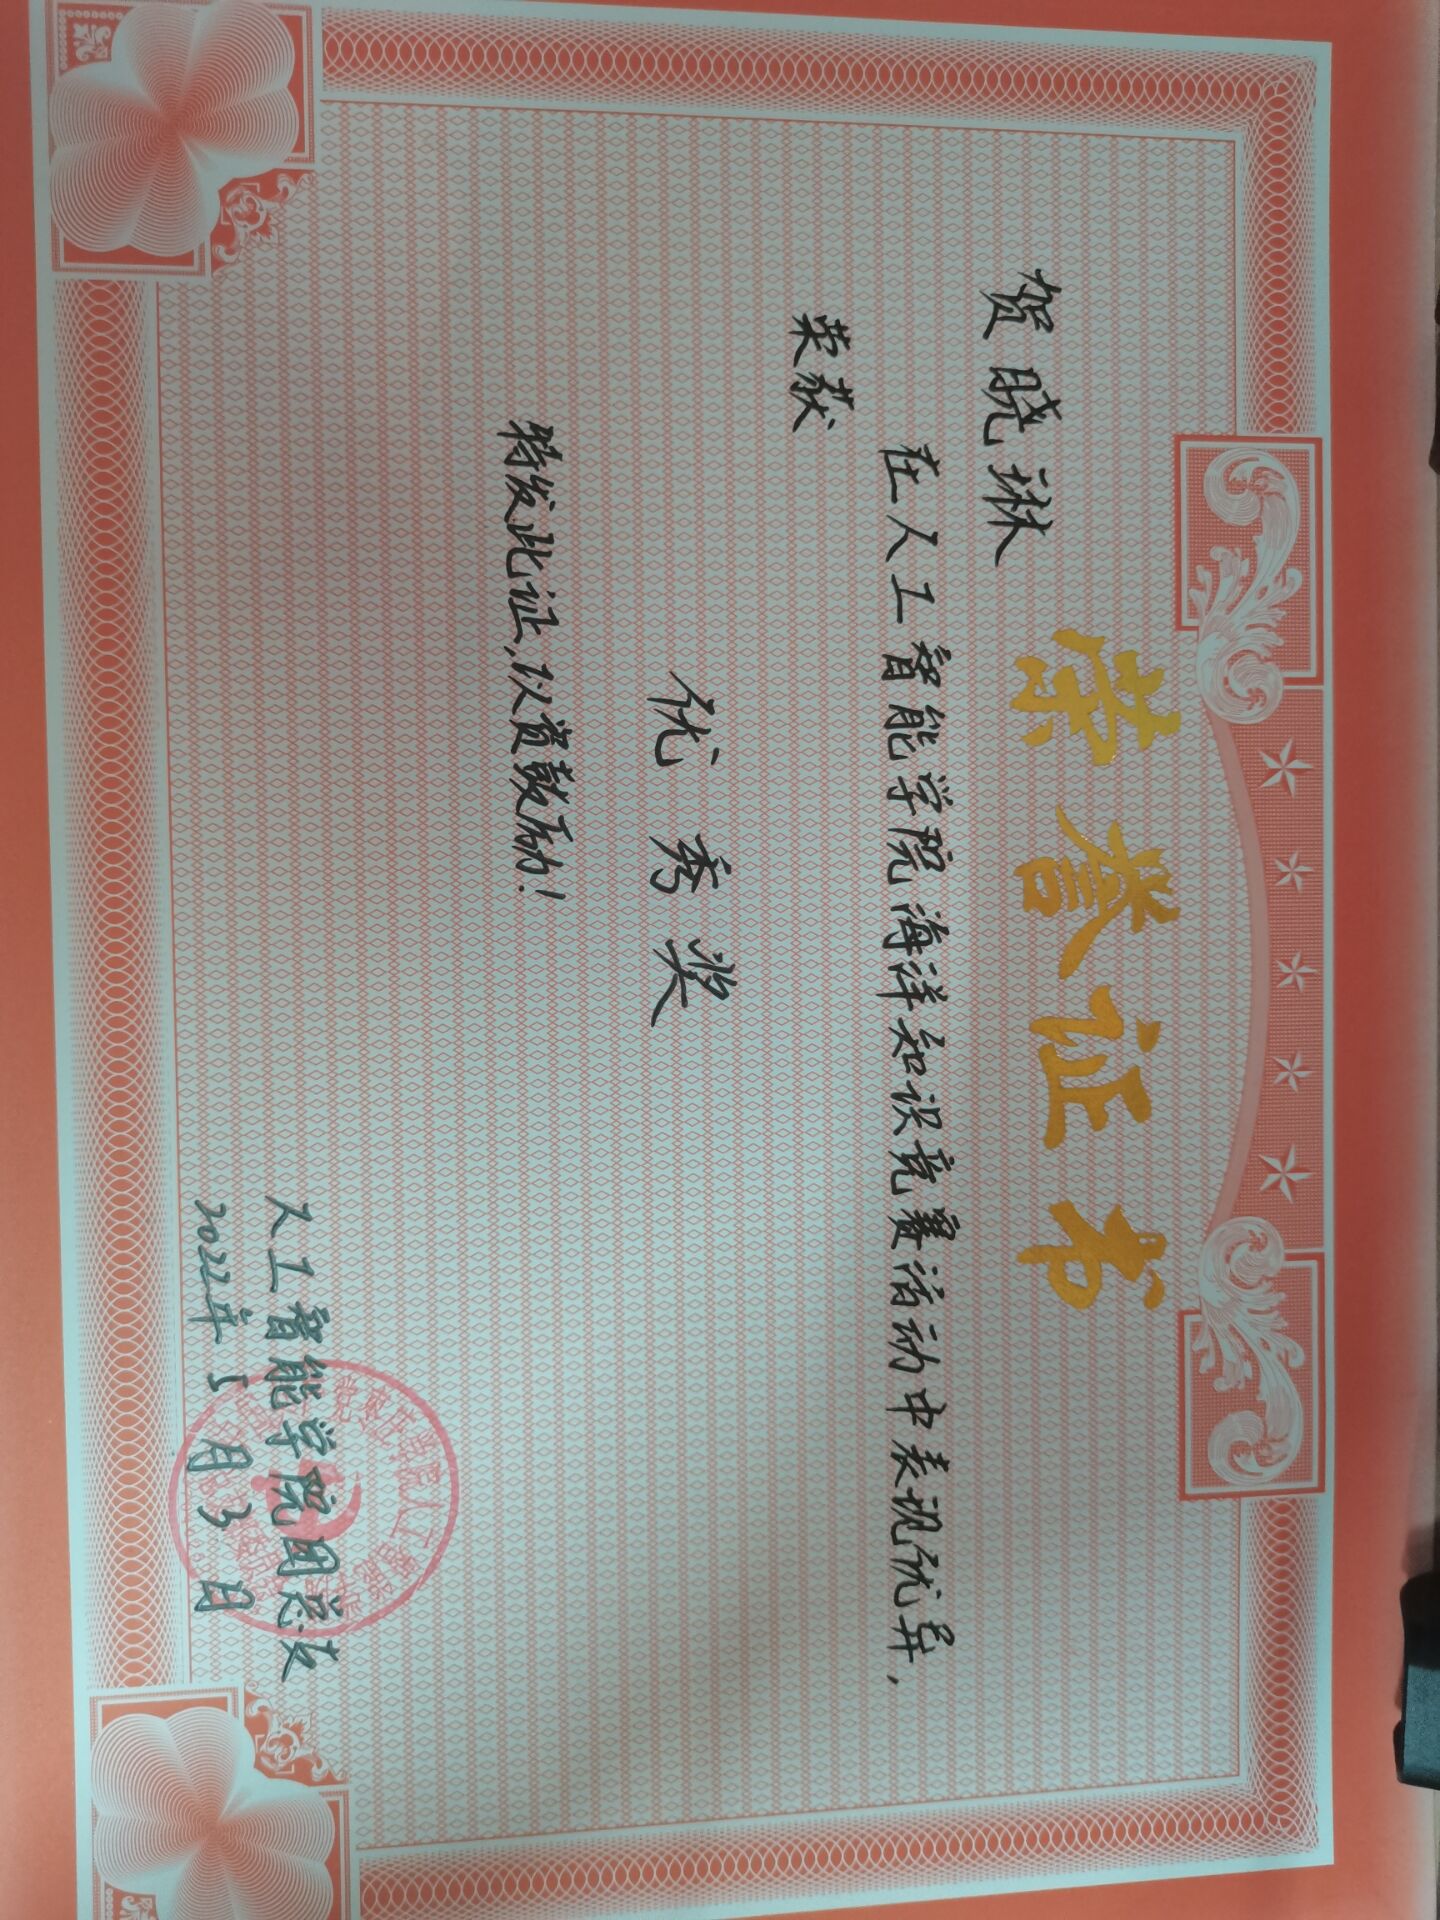 荣誉证书
贺晓琳
在人工智能学院海洋知识竞赛活动中表现优异,
荣获
优秀奖
特发此证,以资鼓励!
人工智能学院团总支
2022年5月3日